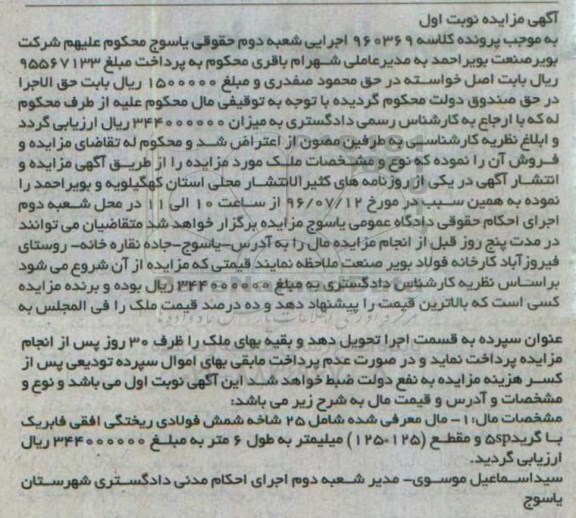 آگهی مزایده نوبت اول
به موجب پرونده کلاسه ۹۶۰۳۶۹ اجرایی شعبه دوم حقوقی یاسوج محکوم علیهم شرکت
بویرصنعت بویراحمد به مدیرعاملی شهرام باقری محکوم به پرداخت مبلغ ۹۵۵۶۷۱۳۳
ریال بابت اصل خواسته در حق محمود صفدری و مبلغ ۱۵۰۰۰۰۰ ریال بابت حق الاجرا
در حق صندوق دولت محکوم گردیده با توجه به توقیفی مال محکوم علیه از طرف محکوم
له که با ارجاع به کارشناس رسمی دادگستری به میزان ۳۴۴۰۰۰۰۰۰ ریال ارزیابی گردد
و ابلاغ نظریه کارشناسی به طرفین مصون از اعتراض شد و محکوم له تقاضای مزایده و
فروش آن را نموده که نوع و مشخصات ملک مورد مزایده را از طریق آگهی مزایده و
انتشار آگهی در یکی از روزنامه های کثیرالانتشار محلی استان کهگیلویه و بویراحمد را
نموده به همین سبب در مورخ ۹۶/۰۷/۱۲ از ساعت ۱۰ الی ۱۱ در محل شعبه دوم
اجرای احکام حقوقی دادگاه عمومی یاسوج مزایده برگزار خواهد شد متقاضیان می توانند
در مدت پنج روز قبل از انجام مزایده مال را به آدرس-یاسوج-جاده نقاره خانه- روستای
فیروزآباد کارخانه فولاد بویر صنعت ملاحظه نمایند قیمتی که مزایده از آن شروع می شود
براساس نظریه کارشناس دادگستری به مبلغ ۳۴۴۰۰۰۰۰۰ ریال بوده و برنده مزایده
کسی است که بالاترین قیمت را پیشنهاد دهد و ده درصد قیمت ملک را فی المجلس به
عنوان سپرده به قسمت اجرا تحویل دهد و بقیه بهای ملک را ظرف ۳۰ روز پس از انجام
مزایده پرداخت نماید و در صورت عدم پرداخت مابقی بهای اموال سپرده تودیعی پس از
کسر هزینه مزایده به نفع دولت ضبط خواهد شد این آگهی نوبت اول می باشد و نوع و
مشخصات و آدرس و قیمت مال به شرح زیر می باشد:
مشخصات مال: ۱- مال معرفی شده شامل ۲۵ شاخه شمش فولادی ریختگی افقی فابریک
با گرید۵sp و مقطع (۱۲۵*۱۲۵) میلیمتر به طول ۶ متر به مبلغ ۳۴۴۰۰۰۰۰۰ ریال
ارزیابی گردید.
سیداسماعیل موسوی- مدیر شعبه دوم اجرای احکام مدنی دادگستری شهرستان
یاسوج